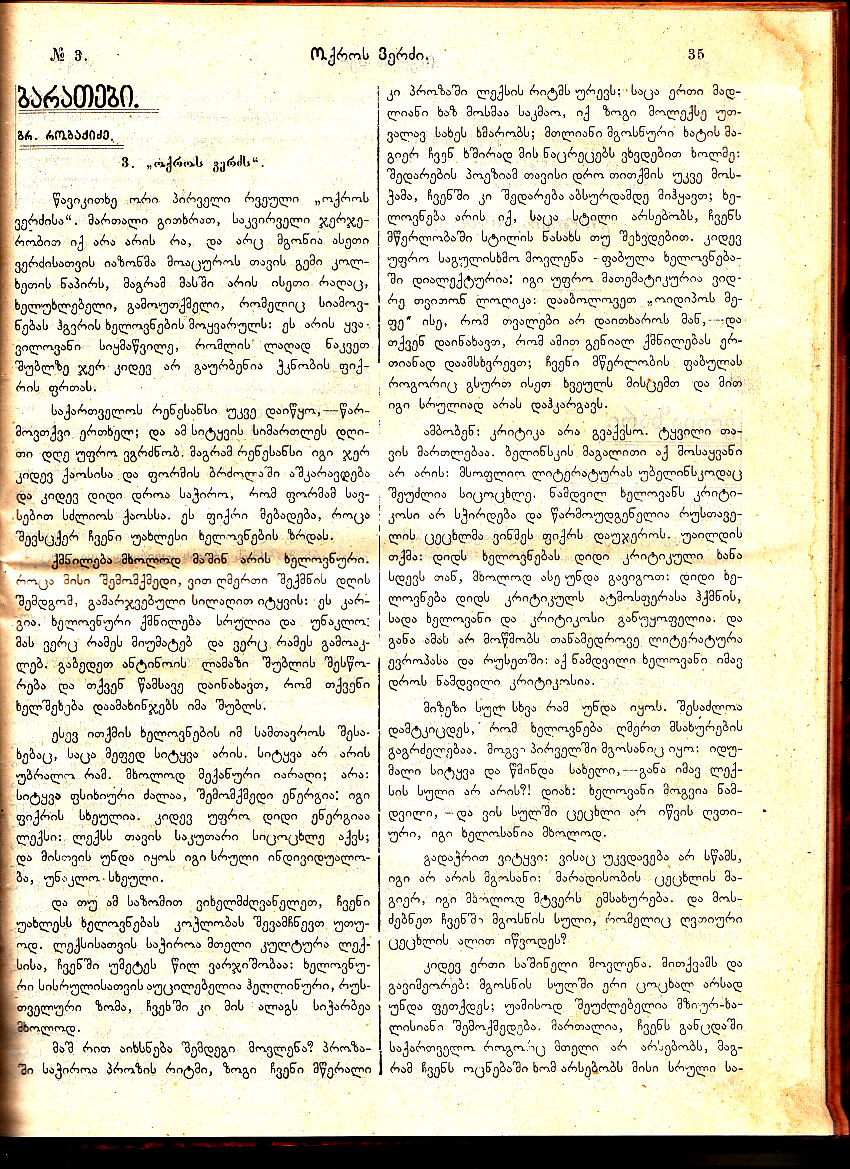 № 3.
ოქროს ვერძი.
35
ბარათები.
გრ. რობაქიძე.
3. „ოქროს ვერძს“.
წავიკითხე ორი პირველი რვეული „ოქროს
ვერძისა“. მართალი გითხრათ, საკვირველი ჯერჯე-
რობით იქ არა არის რა, და არც მგონია ასეთი
ვერძისათვის იაზონმა მოაცუროს თავის გემი კოლ-
ხეთის ნაპირს, მაგრამ მასში არის ისეთი რაღაც,
ხელუხლებელი, გამოუთქმელი, რომელიც სიამოვ-
ნებას ჰგვრის ხელოვნების მოყვარულს: ეს არის ყვა-
ვილოვანი სიყმაწვილე, რომლის ლაღად ნაკვეთ
შუბლზე ჯერ კიდევ არ გაურბენია ჭკნობის ფიქ-
რის ფრთას.
საქართველოს რენესანსი უკვე დაიწყო,—წარ-
მოვთქვი ერთხელ; და ამ სიტყვის სიმართლეს დღი-
თი დღე უფრო ვგრძნობ. მაგრამ რენესანსი იგი ჯერ
კიდევ ქაოსისა და ფორმის ბრძოლაში აშკარავდება
და კიდევ დიდი დროა საჭირო, რომ ფორმამ სავ-
სებით სძლიოს ქაოსსა. ეს ფიქრი მებადება, როცა
შევსცქერ ჩვენი უახლესი ხელოვნების ზრდას.
ქმნილება მხოლოდ მაშინ არის ხელოვნური.
როცა მისი შემომქმედი, ვით ღმერთი შექმნის დღის
შემდგომ, გამარჯვებული სილაღით იტყვის: ეს კარ-
გია. ხელოვნური ქმნილება სრულია და უნაკლო:
მას ვერც რამეს მიუმატებ და ვერც რამეს გამოაკ-
ლებ. გაბედეთ ანტინოის ლამაზი შუბლის შესწო-
რება და თქვენ წამსავე დაინახავთ, რომ თქვენი
ხელშეხება დაამახინჯებს იმა შუბლს.
ესევ ითქმის ხელოვნების იმ სამთავროს შესა-
ხებაც, საცა მეფედ სიტყვა არის. სიტყვა არ არის
უბრალო რამ. მხოლოდ მექანური იარაღი; არა:
სიტყვა ფსიხიური ძალაა, შემომქმედი ენერგია: იგი
ფიქრის სხეულია. კიდევ უფრო დიდი ენერგიაა
ლექსი: ლექსს თავის საკუთარი სიცოცხლე აქვს;
და მისთვის უნდა იყოს იგი სრული ინდივიდუალო-
ბა, უნაკლო სხეული.
და თუ ამ საზომით ვიხელმძღვანელეთ, ჩვენი
უახლესს ხელოვნებას კოჭლობას შევამჩნევთ უთუ-
ოდ. ლექსისათვის საჭიროა მთელი კულტურა ლექ-
სისა, ჩვენში უმეტეს წილ ვარჯიშობაა: ხელოვნუ-
რი სისრულისათვის აუცილებელია ჰელლინური, რუს-
თველური ზომა, ჩვენში კი მის ალაგს სიჭარბეა
მხოლოდ.
მაშ რით აიხსნება შემდეგი მოვლენა? პროზა-
ში საჭიროა პროზის რიტმი, ზოგი ჩვენი მწერალი
კი პროზაში ლექსის რიტმს ურევს; საცა ერთი მად-
ლიანი ხაზ მოსმაა საკმაო, იქ ზოგი მოლექსე უთ-
ვალავ სახეს ხმარობს; მთლიანი მგოსნური ხატის მა-
გიერ ჩვენ ხშირად მის ნაცრეცებს ვხვდებით ხოლმე:
შედარების პოეზიამ თავისი დრო თითქმის უკვე მოს-
ჭამა, ჩვენში კი შედარება აბსურდამდე მიჰყავთ; ხე-
ლოვნება არის იქ, საცა სტილი არსებობს, ჩვენს
მწერლობაში სტილის ნასახს თუ შეხვდებით. კიდევ
უფრო საგულისხმო მოვლენა - ფაბულა ხელოვნება-
ში დიალექტურია: იგი უფრო მათემატიკურია ვიდ-
რე თვითონ ლოღიკა: დააბოლოვეთ „ოიდიპოს მე-
ფე“ ისე, რომ თვალები არ დაითხაროს მან,—და
თქვენ დაინახავთ, რომ ამით გენიალ ქმნილებას ერ-
თიანად დაამსხვრევთ; ჩვენი მწერლობის ფაბულას
როგორიც გსურთ ისეთ ხვეულს მისცემთ და მით
იგი სრულიად არას დაჰკარგავს.
ამბობენ: კრიტიკა არა გვაქვსო. ტყვილი თა-
ვის მართლებაა. ბელინსკის მაგალითი აქ მოსაყვანი
არ არის: მსოფლიო ლიტერატურას უბელინსკოდაც
შეუძლია სიცოცხლე. ნამდვილ ხელოვანს კრიტი-
კოსი არ სჭირდება და წარმოუდგენელია რუსთავე-
ლის ცეცხლმა ვინმეს ფიქრს დაუჯეროს. უაილდის
თქმა: დიდს ხელოვნებას დიდი კრიტიკული ხანა
სდევს თან, მხოლოდ ასე უნდა გავიგოთ: დიდი ხე-
ლოვნება დიდს კრიტიკულს ატმოსფერასა ჰქმნის,
სადა ხელოვანი და კრიტიკოსი განუყოფელია. და
განა ამას არ მოწმობს თანამედროვე ლიტერატურა
ევროპასა და რუსეთში: აქ ნამდვილი ხელოვანი იმავ
დროს ნამდვილი კრიტიკოსია.
მიზეზი სულ სხვა რამ უნდა იყოს. შესაძლოა
დამტკიცდეს, რომ ხელოვნება ღმერთ მსახურების
გაგრძელებაა. მოგვი პირველში მგოსანიც იყო: იდუ-
მალი სიტყვა და წმინდა სახელი,—განა იმავ ლექ-
სის სული არ არის?! დიახ: ხელოვანი მოგვია ნამ-
დვილი, —და ვის სულში ცეცხლი არ იწვის ღვთი-
ური, იგი ხელოსანია მხოლოდ.
გადაჭრით ვიტყვი: ვისაც უკვდავება არ სწამს,
იგი არ არის მგოსანი: მარადისობის ცეცხლის მა-
გიერ, იგი მხოლოდ მტვერს ემსახურება. და მოს-
ძებნეთ ჩვენში მგოსნის სული, რომელიც ღვთიური
ცეცხლის ალით იწვოდეს?
კიდევ ერთი საშინელი მოვლენა. მითქვამს და
გავიმეორებ: მგოსნის სულში ერი ცოცხალ არსად
უნდა ფეთქდეს; უამისოდ შეუძლებელია მზიურ-ხა-
ლისიანი შემოქმედება. მართალია, ჩვენს განცდაში
საქართველო როგორც მთელი არ არსებობს, მაგ-
რამ ჩვენს ოცნებაში ხომ არსებობს მისი სრული სა-